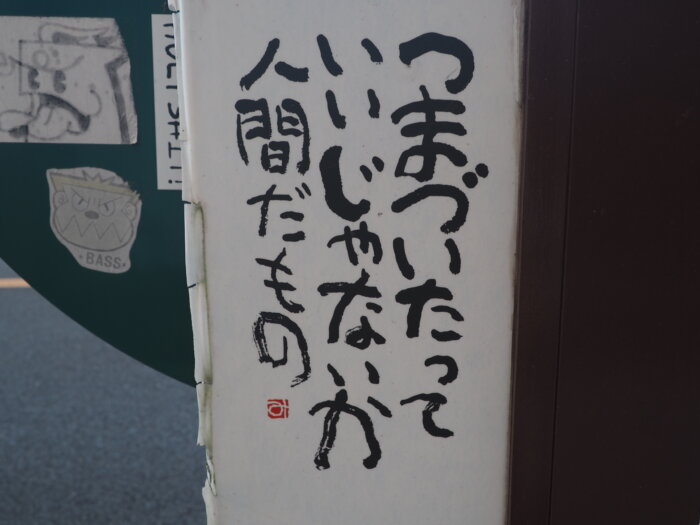 つまづいたって
いいじゃないか
人間だもの
HOLY SHIT!
BASS